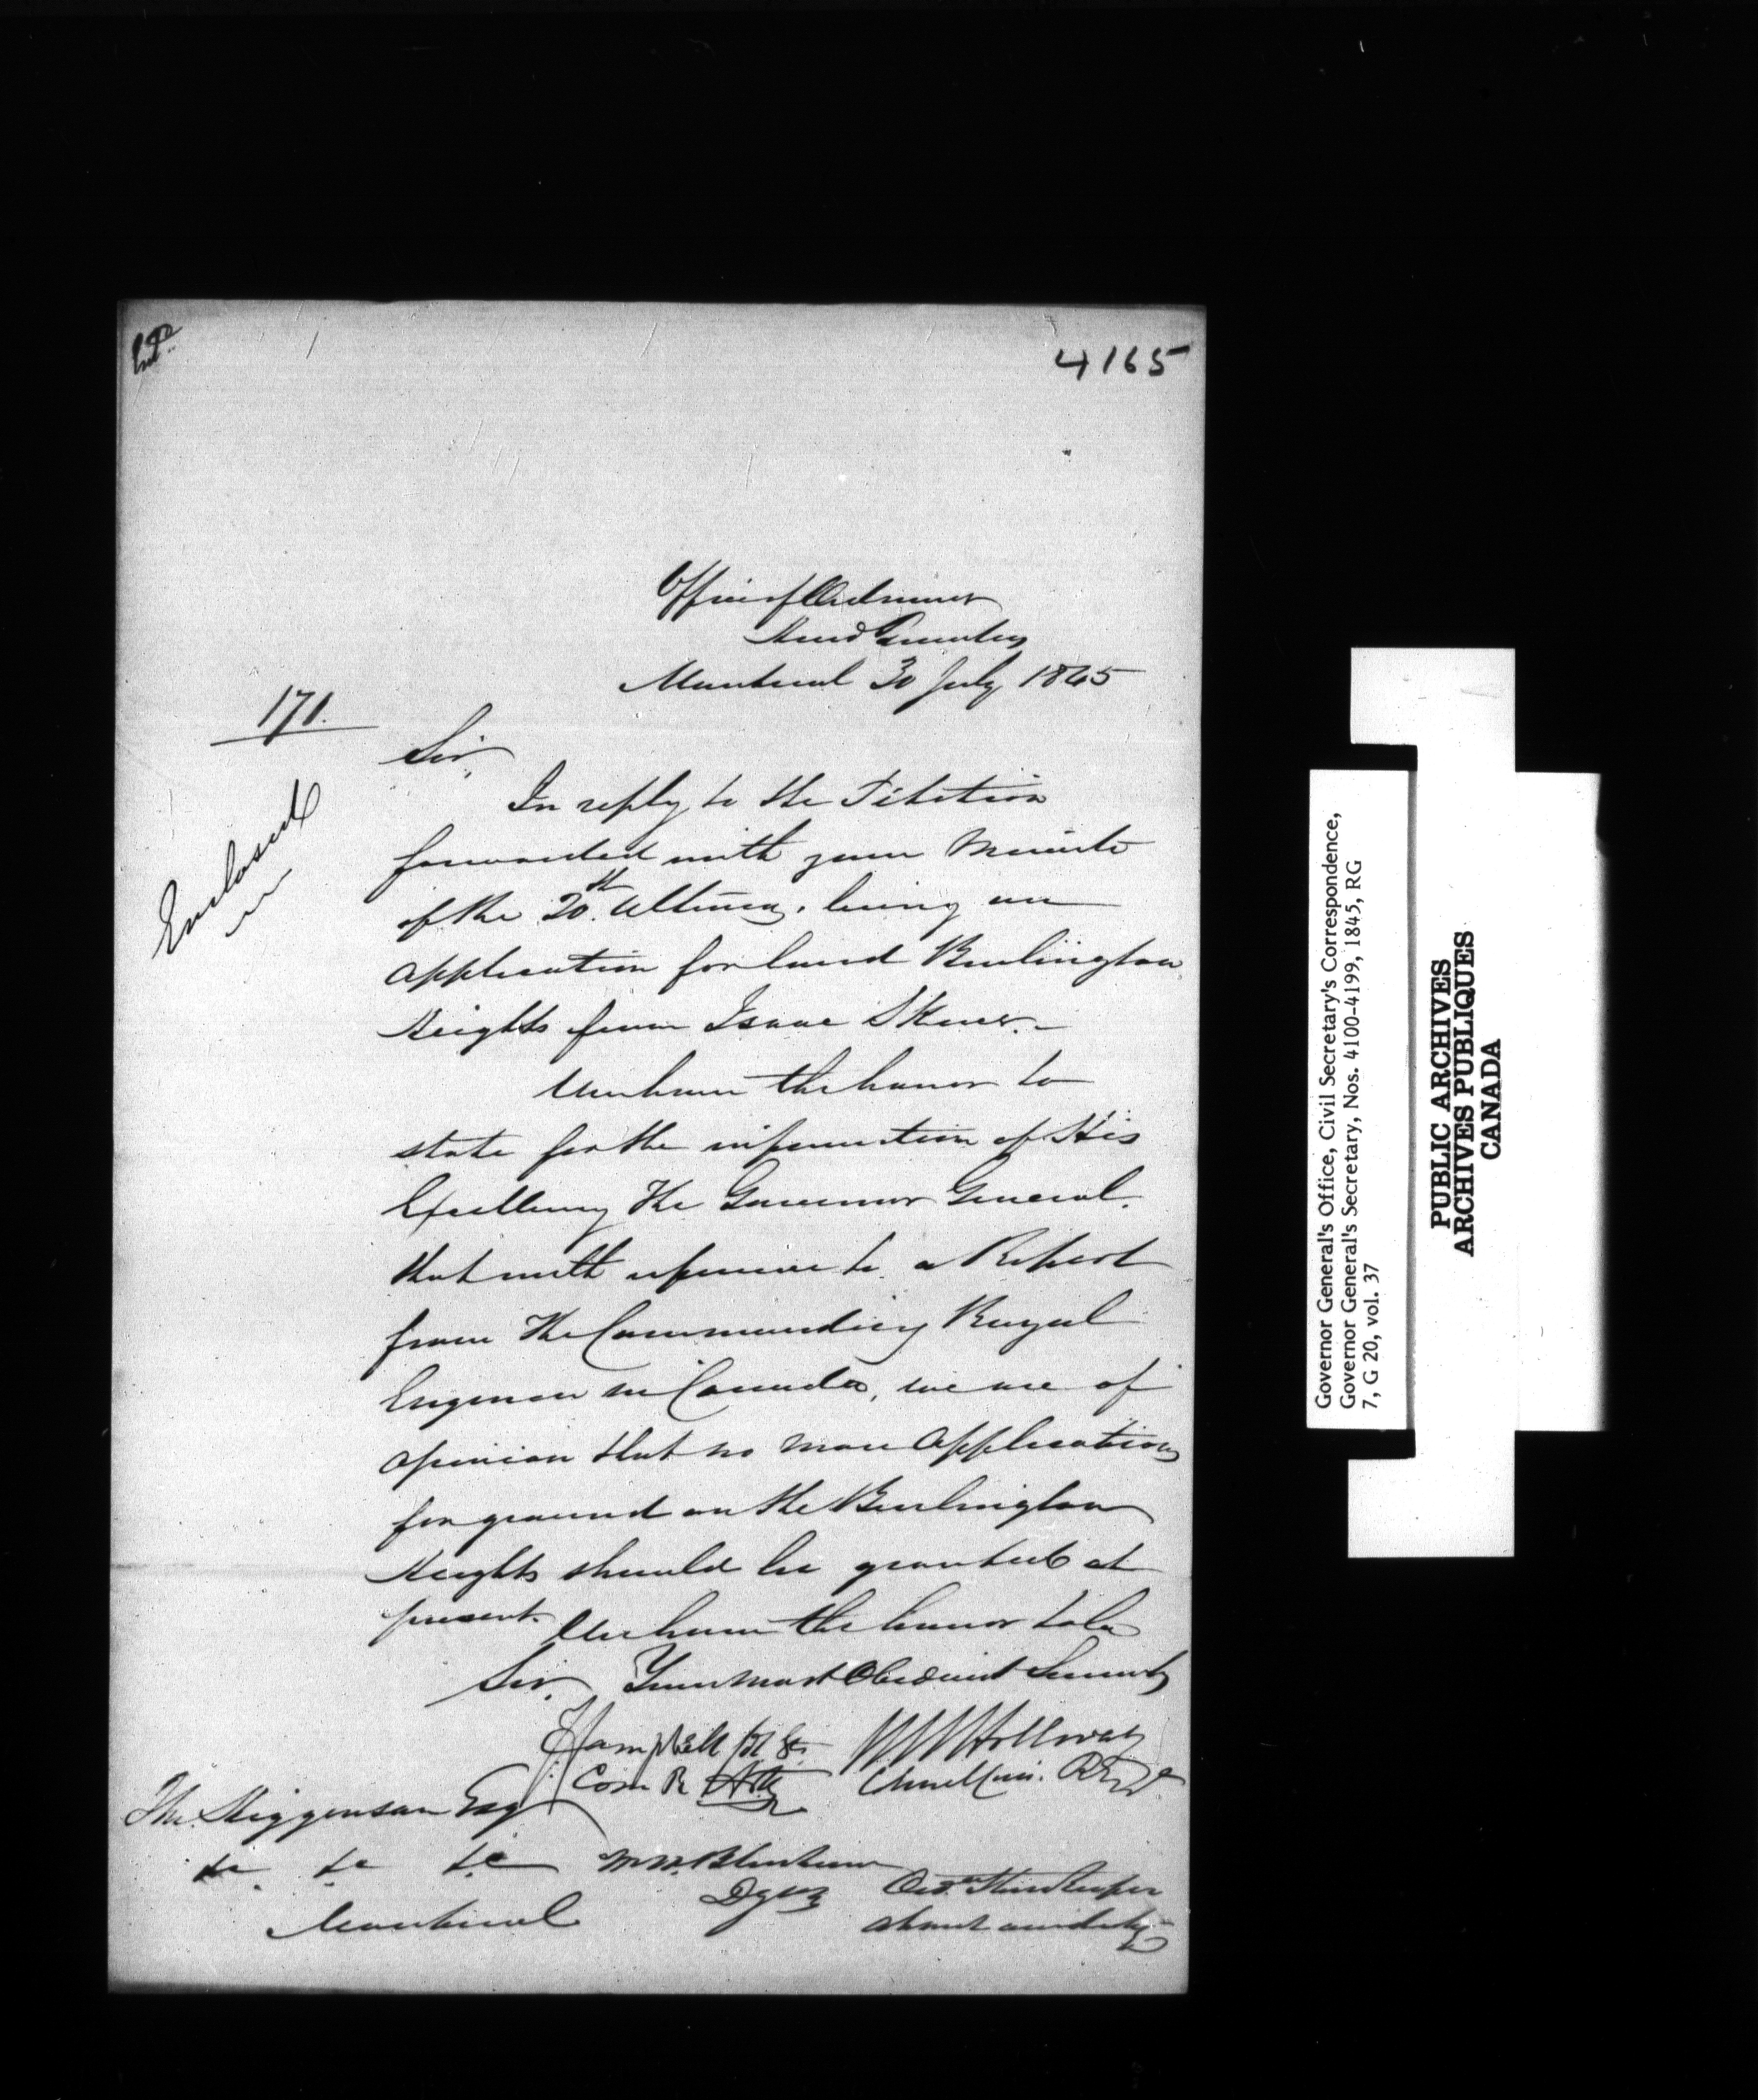 Entd
4165
Office of Ordnance
Head Quarters
Montreal 30 July 1845
171.
Enclosed
Sir,
In reply to the Petition
forwarded with your Minute
of the 20th Ultimo, being an
application for land Burlington
Heights from Isaac
We have the honor to
state for the information of His
Excellency The Governor General.
that with reference to a Report
from The Commanding Royal
Engineer in Canada, we are of
opinion that no more applications
for ground on the Burlington
Heights should be granted at
present. We have the honor to be
Sir, Your most Obedient Servants
Campbell
WHolloway
Com R Arty
Higginson Esq
&c &c &c
Montreal
Ord. Storekeeper
absent on duty
Governor General's Office, Civil Secretary's Correspondence,
Governor General's Secretary, Nos. 4100-4199, 1845, RG
7, G 20, vol. 37
PUBLIC ARCHIVES
ARCHIVES PUBLIQUES
CANADA